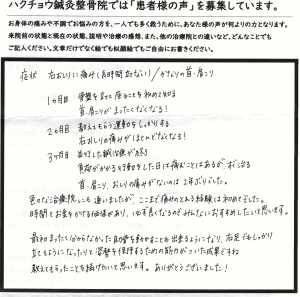 ハクチョウ鍼灸整骨院では「患者様の声」を募集しています。
お身体の痛みや不調でお悩みの方を、一人でも多く救うために、あなた様の声が何よりの力となります。
来院前の状態と現在の状態、説明や治療の感想、また、他の治療院との違いなど、どんなことでも
ご記入ください。文章だけでなく絵でも似顔絵でもご自由にお書きください。
症状 右おしりに痛み(長時間 座れない)/かなりの首、肩こり
1ヶ月目 骨盤を立て座ることを初めて知る
首、肩こりがまったくなくなる!
2ヶ月目 教えてもらう運動をしっかりする
右おしりの痛みがほとんどなくなる!
3ヶ月目 並行した鍼治療が終る
負荷がかかる行動をした日は痛むことはあるが、すぐ治る
首、肩こり、おしりの痛みがないのは2年ぶりでした。
色々な治療院にも通いましたが、ここまで痛みのとれる経験は初めてでした。
時間とお金をかける価値があり、必ず良くなるのでみんなにおすすめしたいと思います。
最初まったく分からなかった肋骨を動かすことも出来るようになり、右足でもしっかり
立てるようになったりと骨盤を保持するための筋力がついた成果ですね
教えてもらったことを続けたいと思います。ありがとうございました!